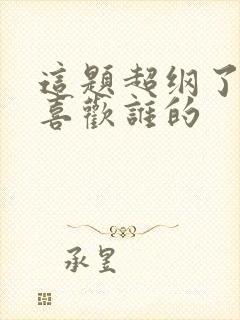 這題超纲了
喜歡誰的
承昱